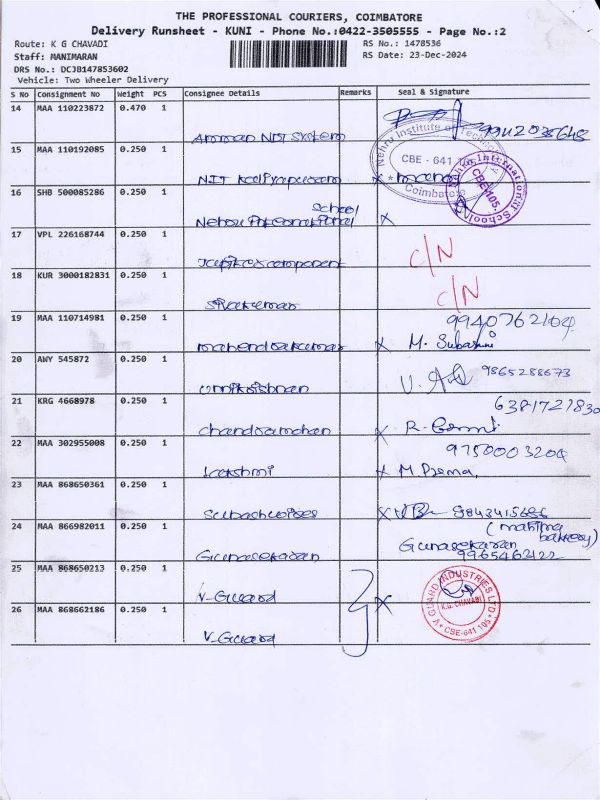 THE PROFESSIONAL COURIERS, COIMBATORE
Delivery Runsheet - KUNI - Phone No.:0422-3505555 - Page No.:2
Route: K G CHAVADI RS No.: 1478536
Staff: MANIMARAN RS Date: 23-Dec-2024
DRS No.: DCJB147853602
Vehicle: Two Wheeler Delivery
S No Consignment No Weight PCS Consignee Details Remarks Seal & Signature
14 MAA 110223872 0.470 1
Amman NDT System 9942035648
Nehru Institute of Techno
CBE - 641 105
Coimbatore
15 MAA 110192085 0.250 1
NIT
Nehru International School
CBE-105.
16 SHB 500085286 0.250 1
School
Nehru International X
17 VPL 226168744 0.250 1
component C/N
18 KUR 3000182831 0.250 1
Sivakumar C/N
19 MAA 110714981 0.250 1 9940762104
mahendrakumar X M. Subashini
20 AWY 545872 0.250 1
unnikrishnan 9865288673
21 KRG 4668978 0.250 1 6381721830
chandramohan X R.
22 MAA 302955008 0.250 1 9750003204
Lakshmi X M Prema,
23 MAA 868650361 0.250 1
X 9843415686
24 MAA 866982011 0.250 1 (mahima bakkery)
Gunasekaran Gunasekaran 9965462122
25 MAA 868650213 0.250 1
V-Guard X
V GUARD INDUSTRIES LTD
K.G. CHAVADI
CBE-641 105
26 MAA 868662186 0.250 1
V-Guard